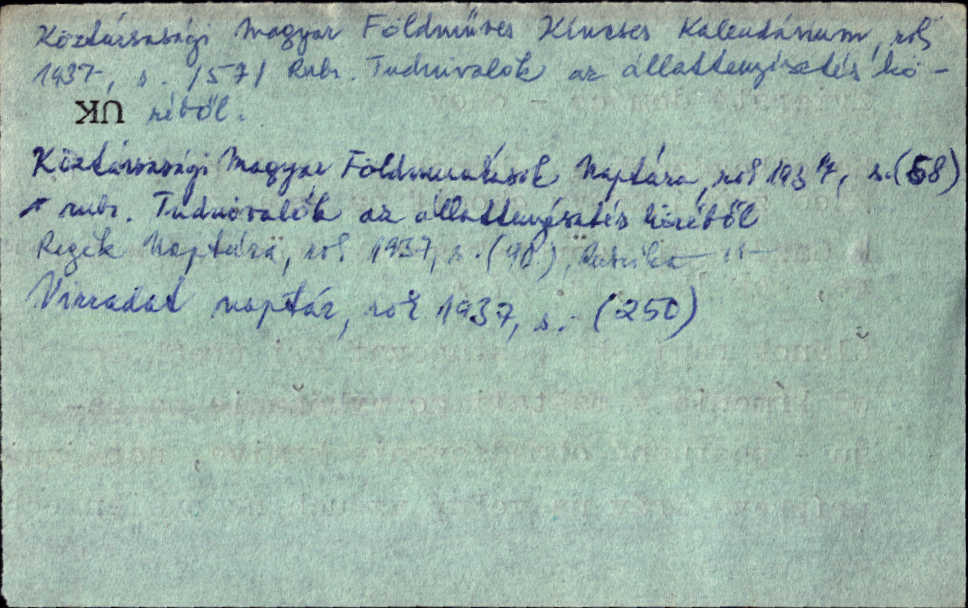 Köztársasági Magyar Földmüves Kincses Kalendárium, roč
1937, s. /57/ Rubr. Tudnivalók az állattenyésztés kö-
UK réből.
Köztársasági Magyar Földmunkások Naptára, roč 1937, s. (58)
rubr. Tudnivalók az állattenyésztés köréből
Regék Naptára, roč. 1937, s. (90), Rubrika -"-
Virradat naptár, roč 1937, s. (250)